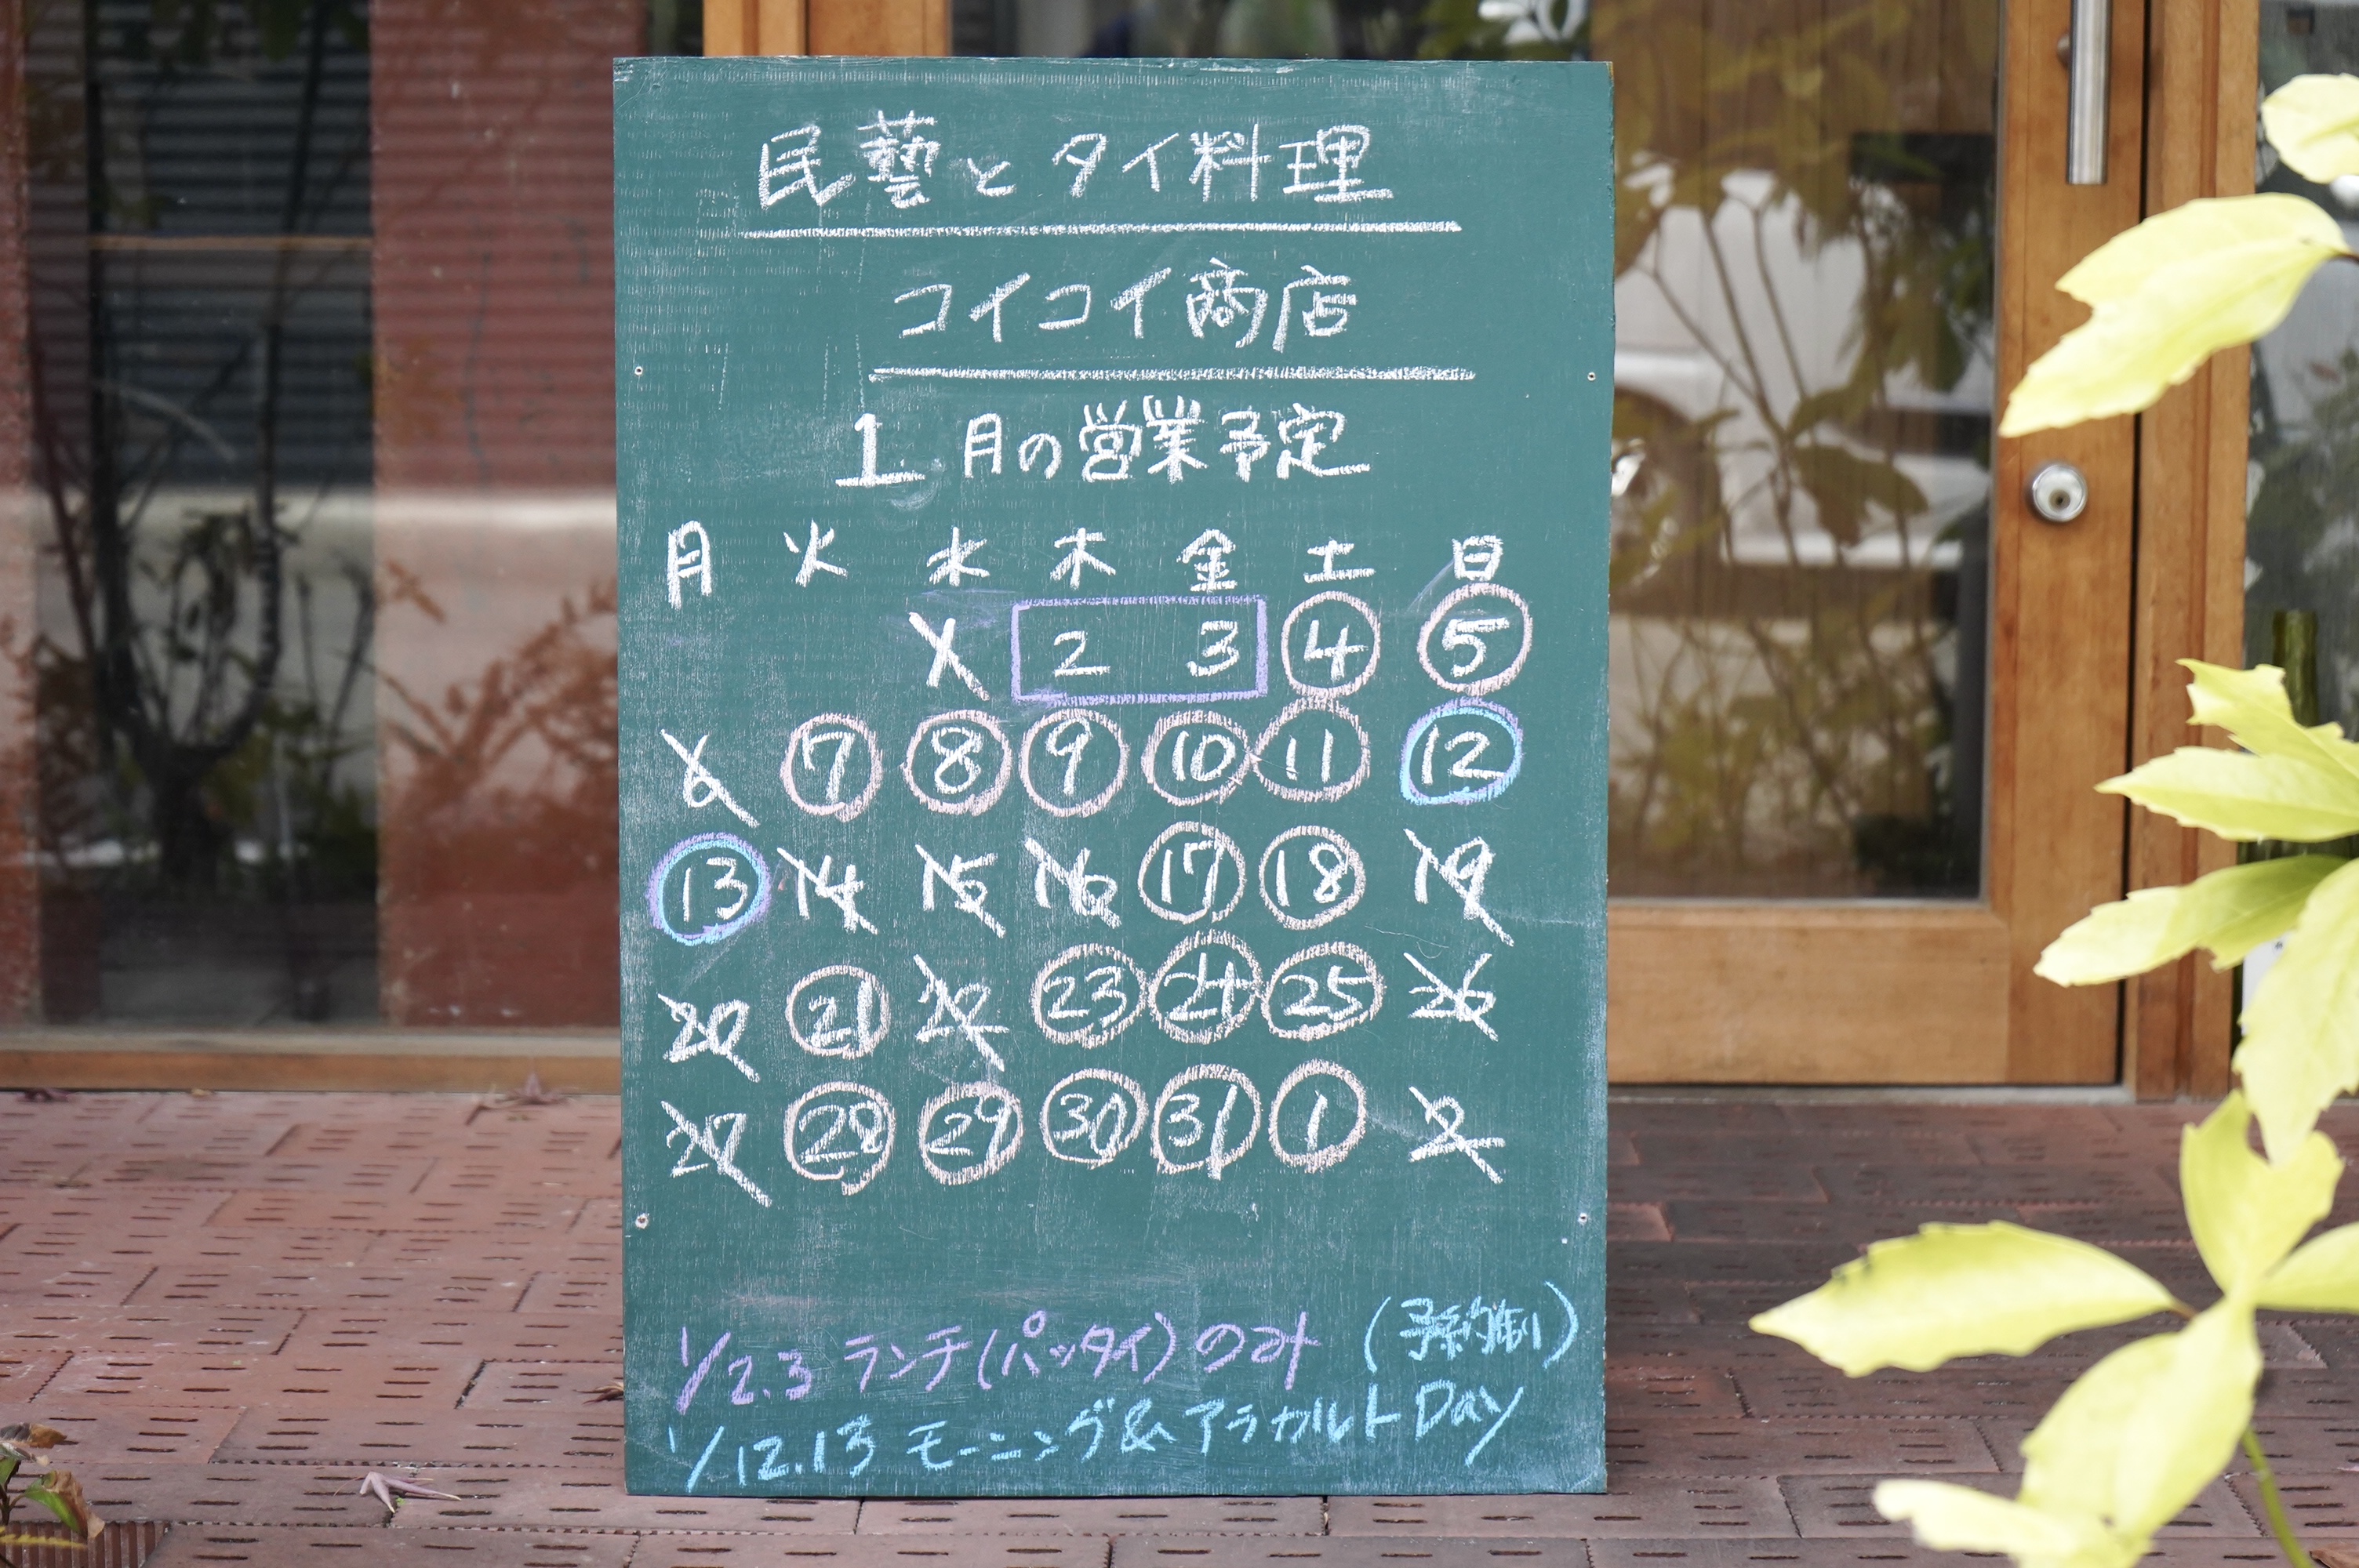 民藝とタイ料理
コイコイ商店
1月の営業予定
月 火 水 木 金 土 日
1 2 3 4 5
6 7 8 9 10 11 12
13 14 15 16 17 18 19
20 21 22 23 24 25 26
27 28 29 30 31 1 2
1/2.3 ランチ(パッタイ)のみ (予約制)
1/12.13 モーニング&アラカルトDay